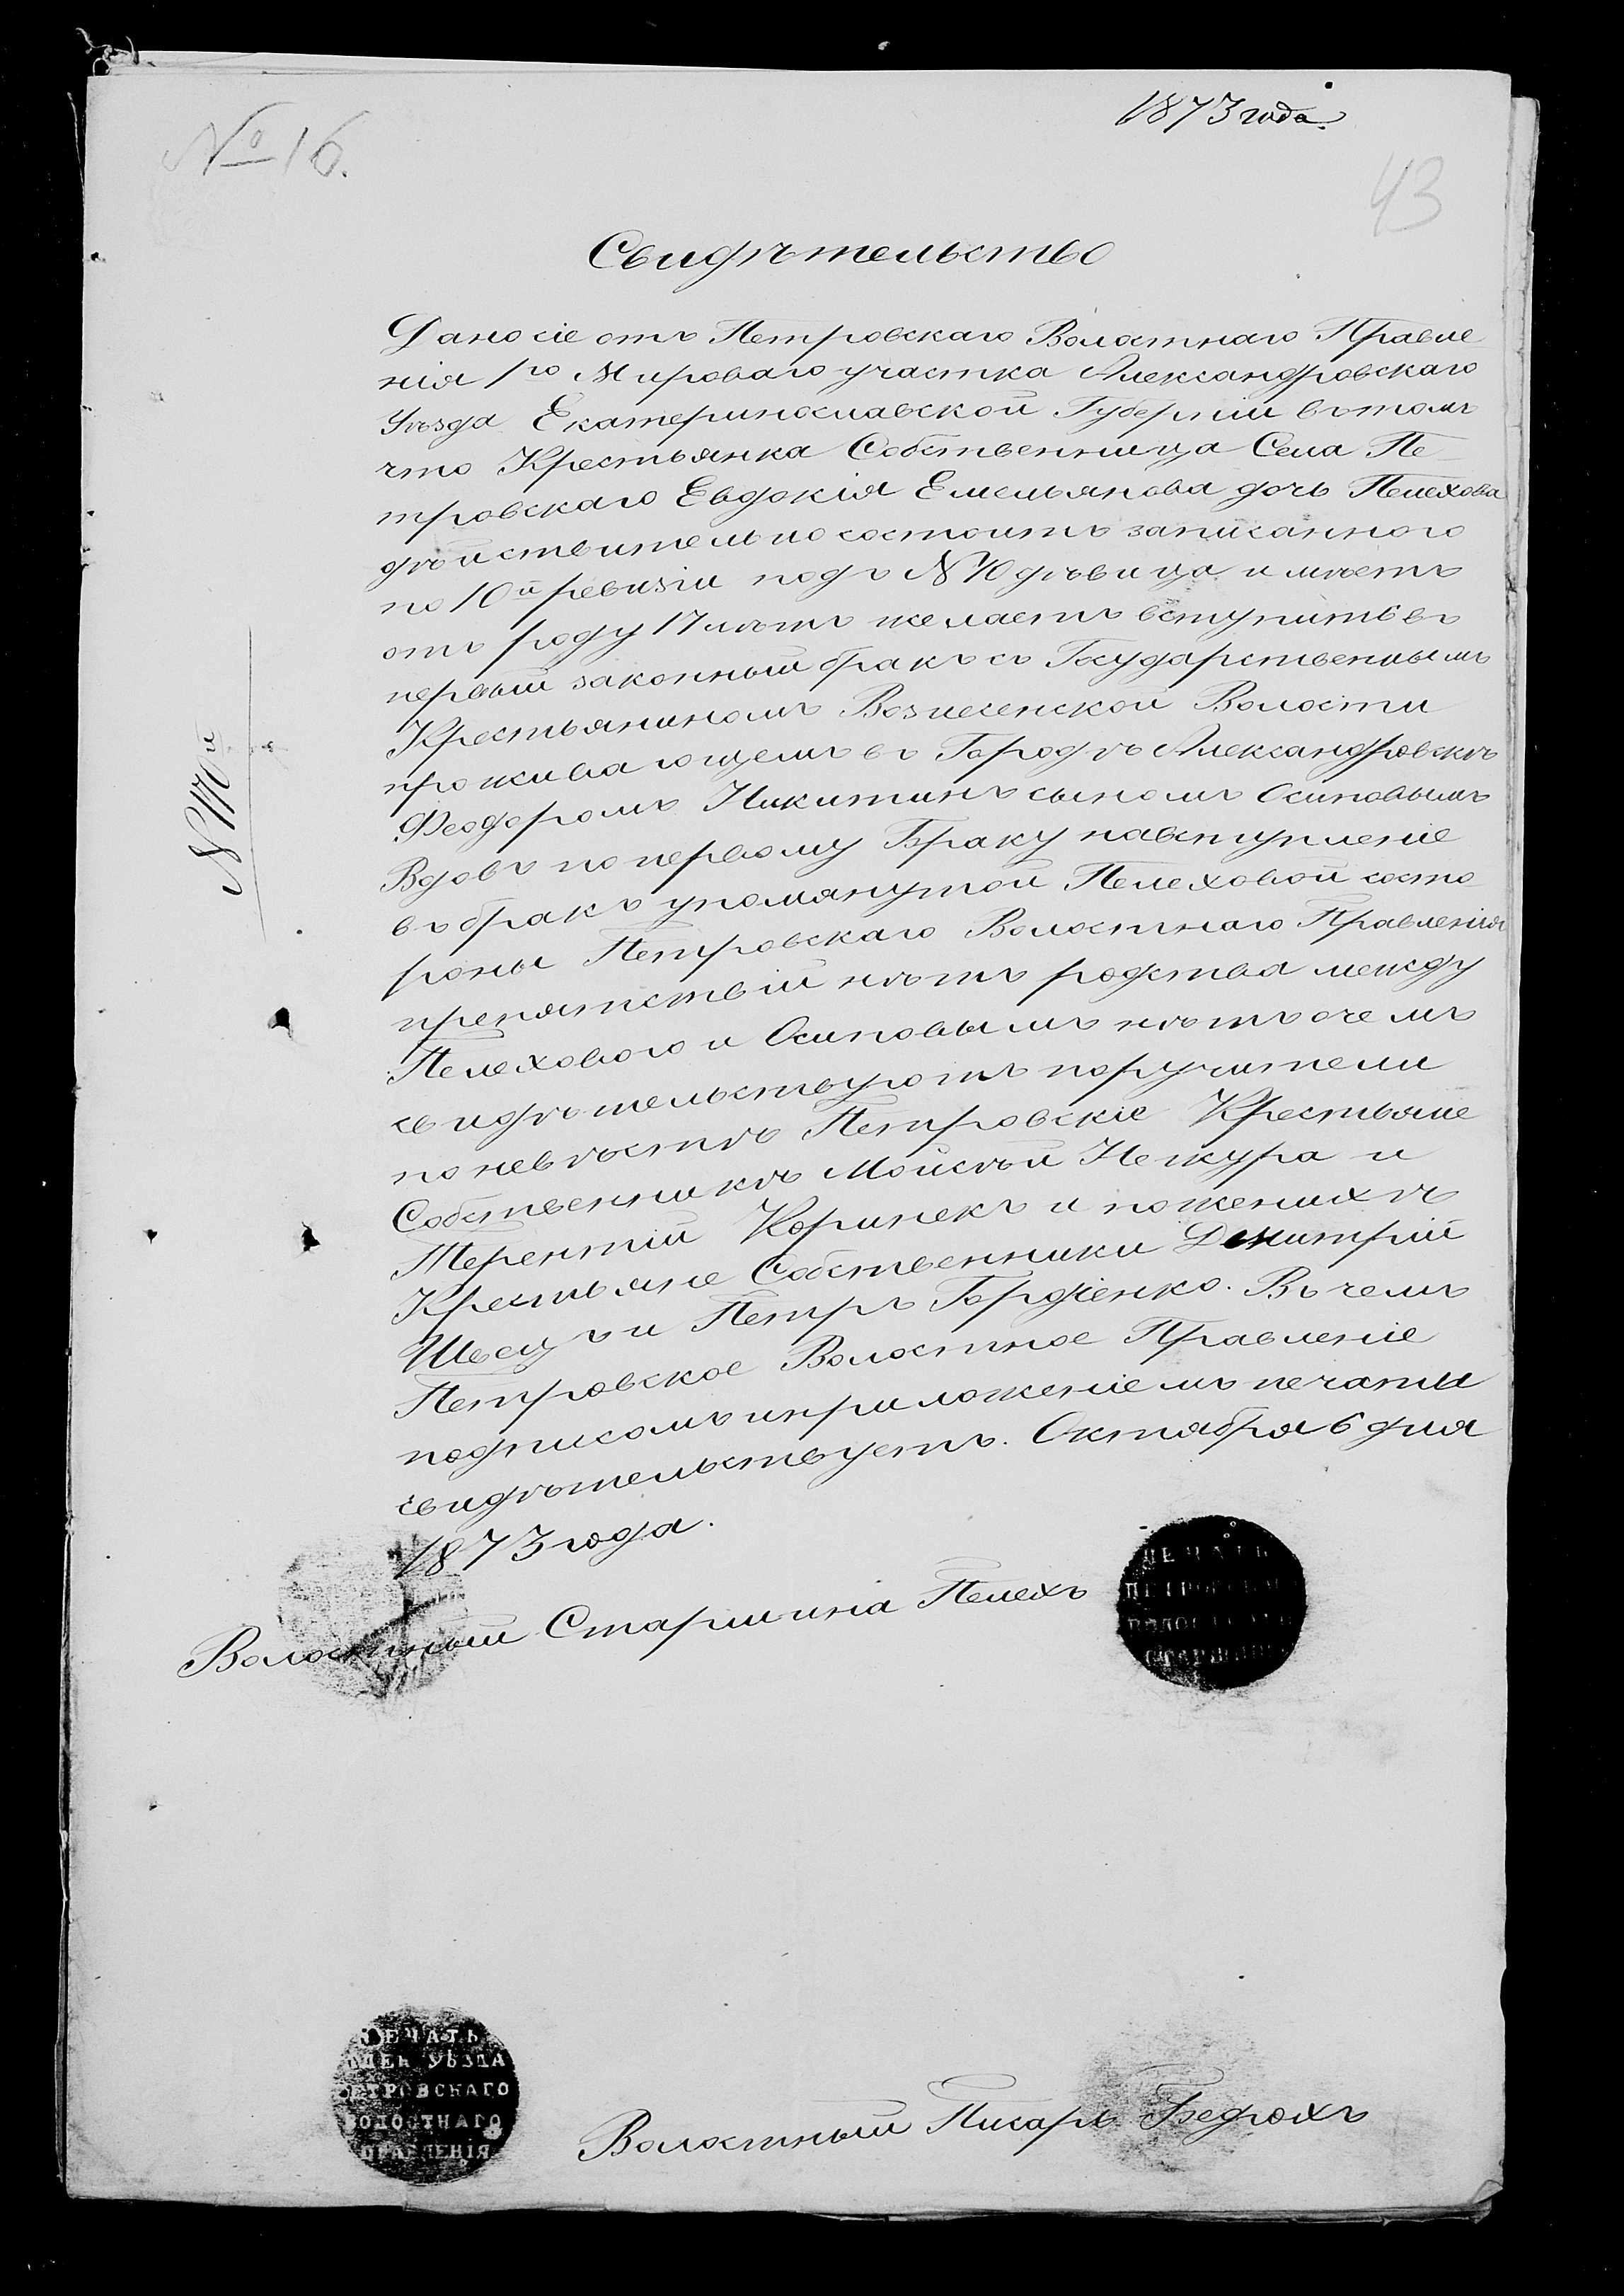 1873 года.
№ 16.
43
Свидѣтельство
Дано сіе отъ Петровскаго Волостнаго Правле
нія 1го Мироваго участка Александровскаго
Уѣзда Екатеринославской Губерніи въ томъ
что Крестьянка Собственница Села Пе
тровскаго Евдокія Емельянова дочь Пелехова
дѣйствительно состоитъ записанного
по 10й ревизіи подъ № 10 дѣвица имѣетъ
отъ роду 17 лѣтъ желаетъ вступить въ
первый законный бракъ съ Государственнымъ
Крестьяниномъ Вознесенской Волости
проживающемъ въ Городѣ Александровскѣ
Феодоромъ Никитинъ сыномъ Осиповымъ
Вдовъ по первому Браку на вступленіе
въ бракъ упомянутой Пелеховой состо
роны Петровскаго Волостнаго Правленія
препятствій нѣтъ родства между
Пелеховою и Осиповымъ нѣтъ о чемъ
свидѣтельствуютъ поручители
по невѣстѣ Петровскіе Крестьяне
Собственникѣ Мойсѣй Нежура и
Терентій Коринекъ и по женихѣ
Крестьяне Собственники Дмитрій
Швецъ и Петръ Гордіенко. Въ чемъ
Петровское Волостное Правленіе
подписомъ и приложеніемъ печати
свидѣтельствуетъ. Октября 6 дня
1873 года.
Волостный Старшина Пелехъ
ПЕЧАТЬ
ПЕТРОВСКАГО
ВОЛОСТНАГО
СТАРШИНЫ
ПЕЧАТЬ
УѢЗДА
ПЕТРОВСКАГО
ВОЛОСТНАГО
ПРАВЛЕНІЯ
Волостный Писарь Бедрохъ